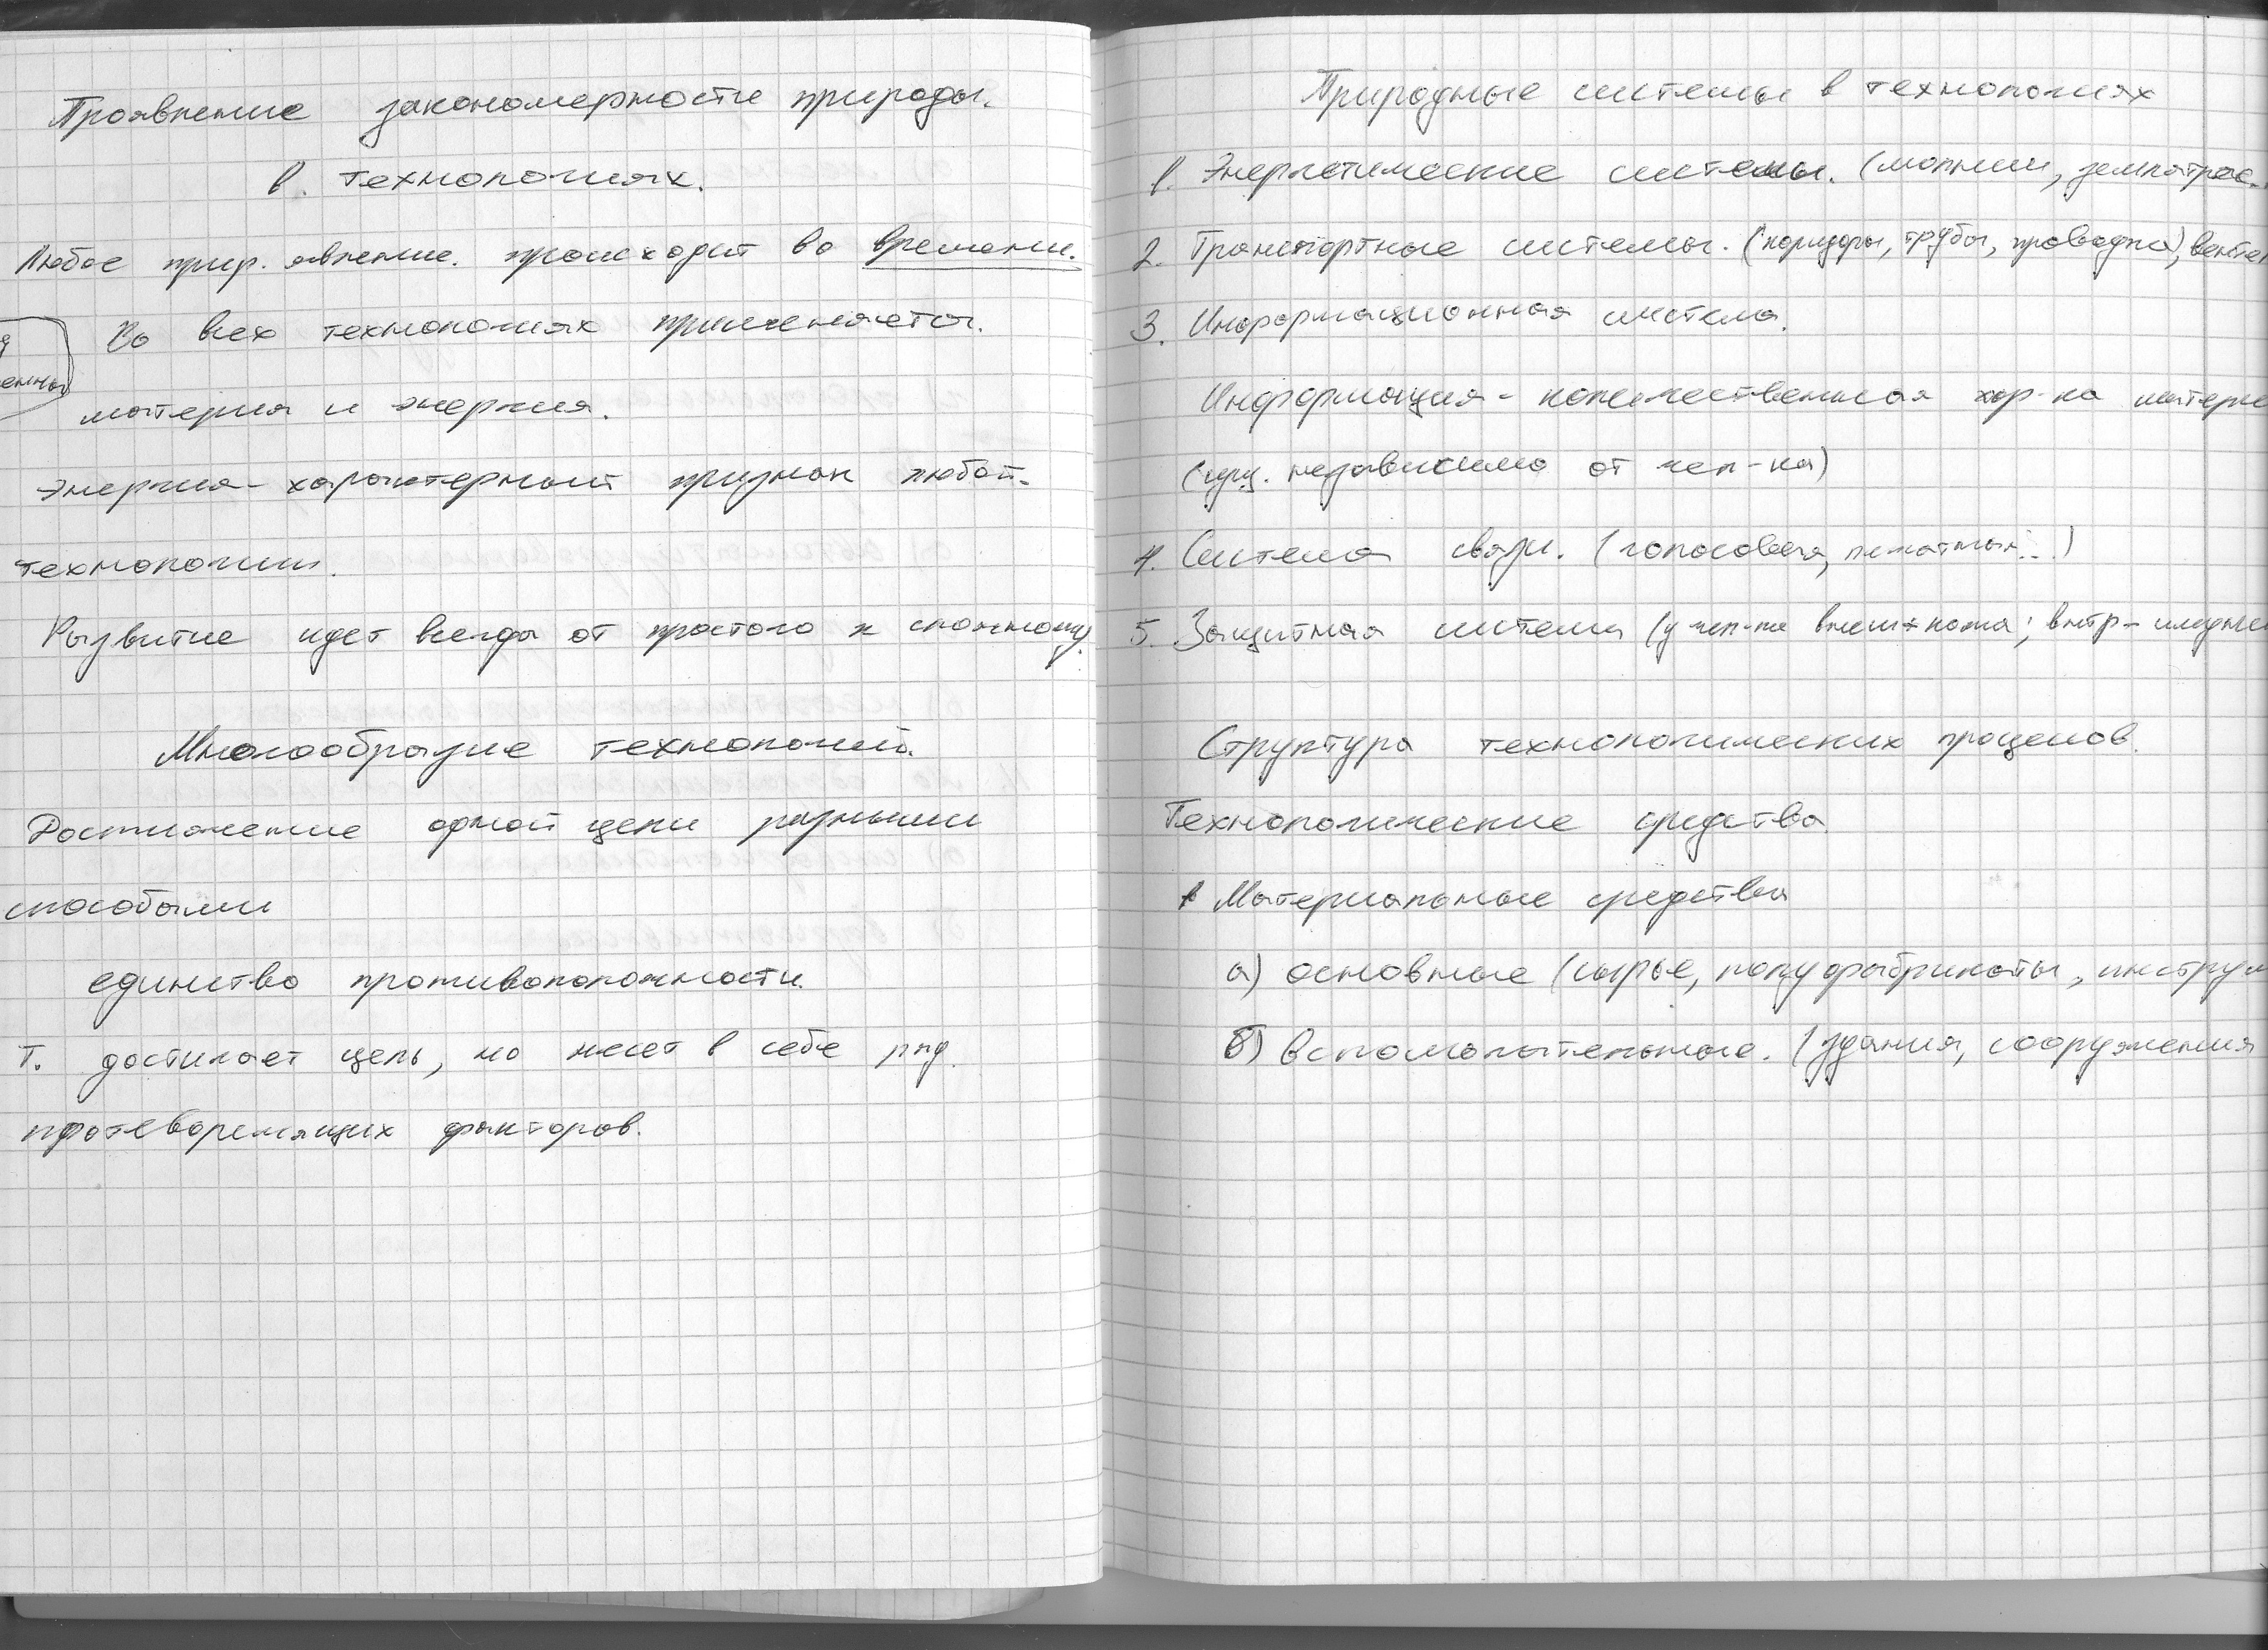 Проявление закономерности природы.
в технологиях.
Любое прир. явление происходит во времени.
Во всех технологиях применяется
материя и энергия.
Энергия - характерный признак любой
технологии.
Развитие идет всегда от простого к сложному.
Многообразие технологий.
Достижение одной цели разными
способами
единство противоположности.
Т. достигает цель, но несет в себе ряд
противоречащих факторов.
Природные системы в технологиях
1. Энергетические системы. (молнии, землетряс.
2. Транспортные системы. (коридоры, трубы, проводка), вентел
3. Информационная система.
Информация - количественная хар-ка матери
(сущ. независимо от чел-ка)
4. Система связи. (голосовая, печатная...)
5. Защитная система (у чел-ка внеш - кожа; внтр - имунн
Структура технологических процессов.
Технологические средства
1 Материальные средства
а) основные (сырье, полуфабрикаты, инструм
б) вспомогательные. (здания, сооружения